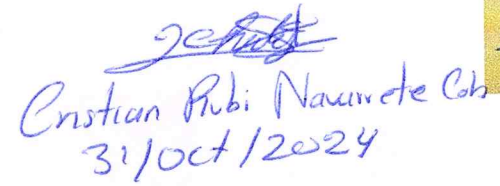 Cristian Rubi Navarrete Cob
31/Oct/2024